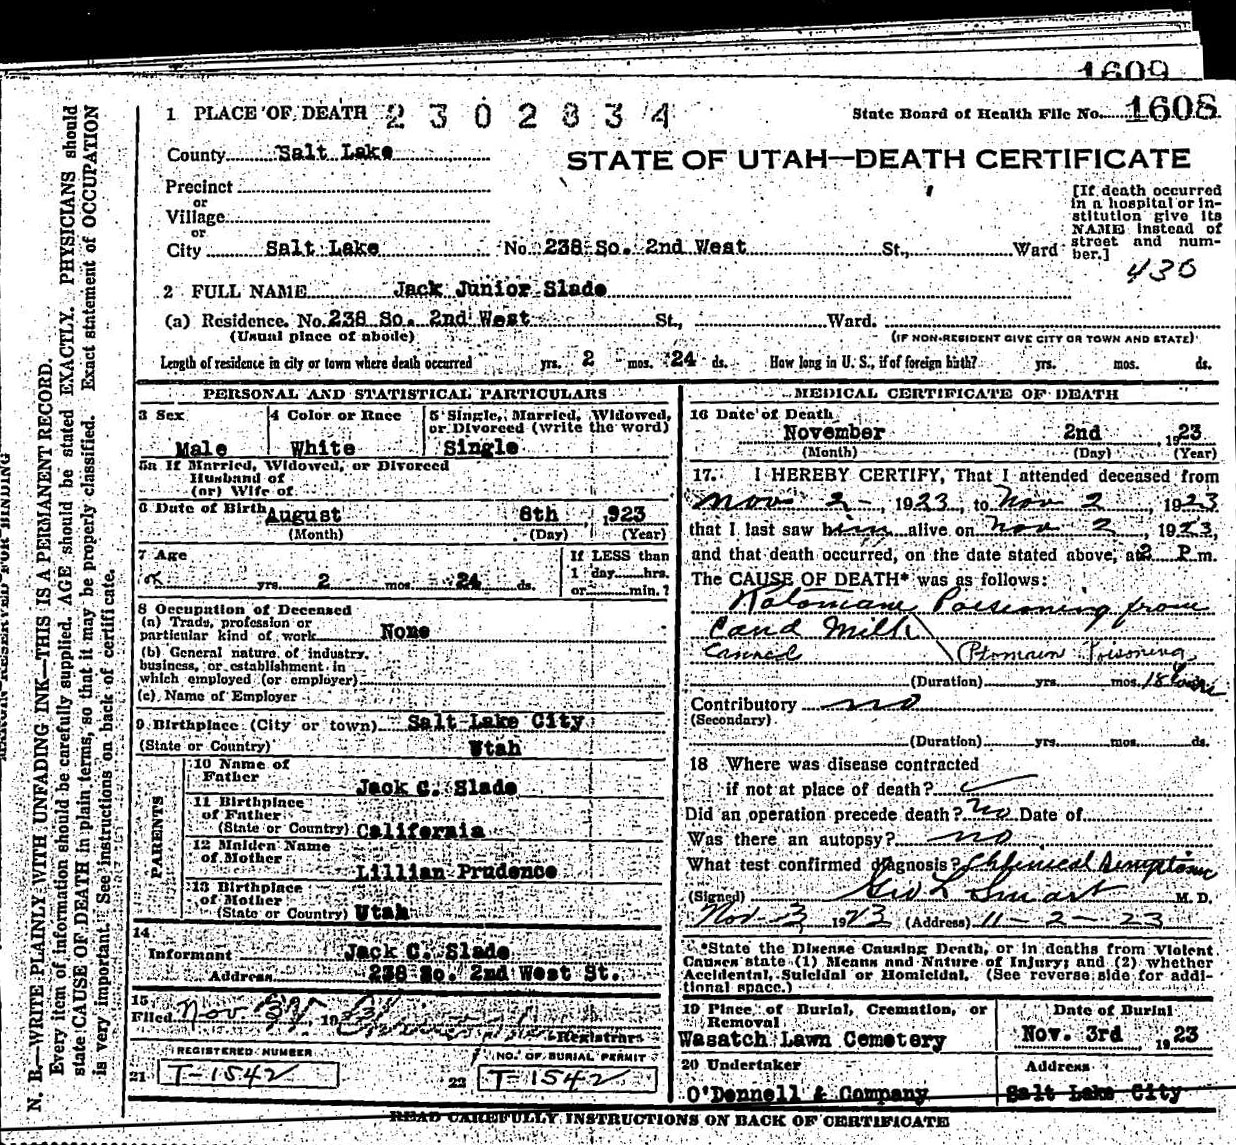 1609
1 PLACE OF DEATH 2302834 State Board of Health File No. 1608
County Salt Lake
STATE OF UTAH—DEATH CERTIFICATE
Precinct
or
Village
or
City Salt Lake No. 238 So. 2nd West St., Ward
[If death occurred
in a hospital or in-
stitution give its
NAME instead of
street and num-
ber.]
430
2 FULL NAME Jack Junior Slade
(a) Residence. No. 238 So. 2nd West St., Ward.
(Usual place of abode) (IF NON-RESIDENT GIVE CITY OR TOWN AND STATE)
Length of residence in city or town where death occurred yrs. 2 mos. 24 ds. How long in U. S., if of foreign birth? yrs. mos. ds.
PERSONAL AND STATISTICAL PARTICULARS
3 Sex 4 Color or Race 5 Single, Married, Widowed,
or Divorced (write the word)
Male White Single
5a If Married, Widowed, or Divorced
Husband of
(or) Wife of
6 Date of Birth August 8th 1923
(Month) (Day) (Year)
7 Age If LESS than
1 day hrs.
yrs. 2 mos. 24 ds. or min.?
8 Occupation of Deceased
(a) Trade, profession or
particular kind of work None
(b) General nature of industry,
business, or establishment in
which employed (or employer)
(c) Name of Employer
9 Birthplace (City or town) Salt Lake City
(State or Country) Utah
PARENTS
10 Name of
Father Jack C. Slade
11 Birthplace
of Father
(State or Country) California
12 Maiden Name
of Mother
Lillian Prudence
13 Birthplace
of Mother
(State or Country) Utah
14
Informant Jack C. Slade
Address 238 So. 2nd West St.
15
Filed Nov 19
Registrar
REGISTERED NUMBER NO. OF BURIAL PERMIT
21 T-1542 22 T-1542
MEDICAL CERTIFICATE OF DEATH
16 Date of Death
November 2nd, 1923
(Month) (Day) (Year)
17. I HEREBY CERTIFY, That I attended deceased from
Nov 2-, 1923, to Nov 2 1923
that I last saw him alive on Nov 2, 1923,
and that death occurred, on the date stated above, at 2 P.m.
The CAUSE OF DEATH* was as follows:
Poisoning from
Cand Milk
Canned Ptomain Poisoning
(Duration) yrs. mos. 18 hours
Contributory no
(Secondary)
(Duration) yrs. mos. ds.
18 Where was disease contracted
if not at place of death?
Did an operation precede death? No Date of
Was there an autopsy? no
What test confirmed diagnosis?
(Signed) Geo L Smart M. D.
Nov 3, 1923 (Address) 11-2-23
*State the Disease Causing Death, or in deaths from Violent
Causes state (1) Means and Nature of Injury; and (2) whether
Accidental, Suicidal or Homicidal. (See reverse side for addi-
tional space.)
19 Place of Burial, Cremation, or
Removal Date of Burial
Wasatch Lawn Cemetery Nov. 3rd 1923
20 Undertaker Address
O'Donnell & Company Salt Lake City
READ CAREFULLY INSTRUCTIONS ON BACK OF CERTIFICATE
MARGIN RESERVED FOR BINDING
N. B.—WRITE PLAINLY WITH UNFADING INK—THIS IS A PERMANENT RECORD.
Every item of information should be carefully supplied. AGE should be stated EXACTLY. PHYSICIANS should
state CAUSE OF DEATH in plain terms, so that it may be properly classified. Exact statement of OCCUPATION
is very important. See instructions on back of certificate.